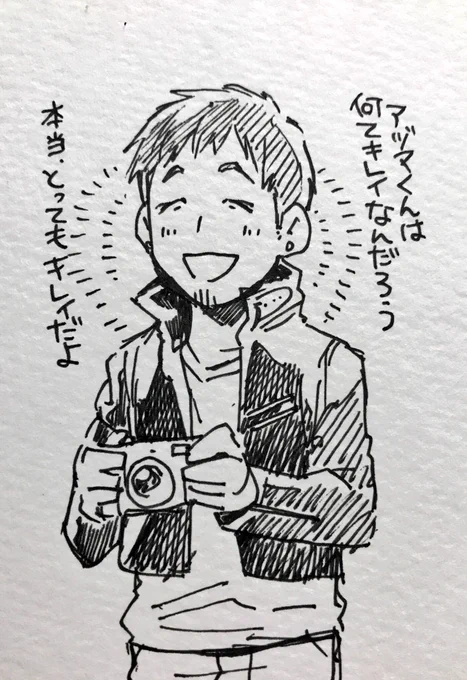 アヅマくんは
何てキレイなんだろう
本当、とってもキレイだよ